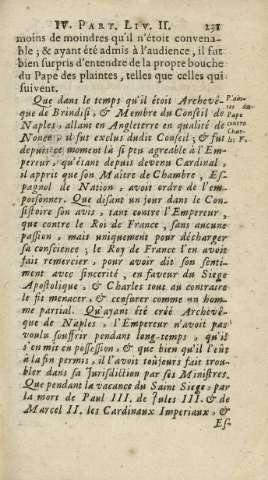 IV. PART. LIV. II. 231
moins de moindres qu'il n'étoit convena-
ble; & ayant été admis à l'audience, il fut
bien surpris d'entendre de la propre bouche
du Pape des plaintes, telles que celles qui
suivent.
Que dans le temps qu'il étoit Archevê-
que de Brindisi, & Membre du Conseil de
Naples, allant en Angleterre en qualité de
Nonce, il fut exclus dudit Conseil; & fut
depuis ce moment là si peu agreable à l'Em-
pereur, qu'étant depuis devenu Cardinal,
il apprit que son Maître de Chambre, Es-
pagnol de Nation, avoit ordre de l'em-
poisonner. Que disant un jour dans le Con-
sistoire son avis, tant contre l'Empereur,
que contre le Roi de France, sans aucune
passion, mais uniquement pour décharger
sa conscience; le Roy de France l'en avoit
fait remercier, pour avoir dit son senti-
ment avec sincerité, en faveur du Siege
Apostolique, & Charles tout au contraire
le fit menacer, & censurer comme un hom-
me partial. Qu'ayant été créé Archevê-
que de Naples, l'Empereur n'avoit pas
voulu souffrir pendant long-temps, qu'il
s'en mit en possession, & que bien qu'il l'eût
à la fin permis, il l'avoit toûjours fait trou-
bler dans sa Jurisdiction par ses Ministres.
Que pendant la vacance du Saint Siege par
la mort de Paul III. de Jules III. & de
Marcel II. les Cardinaux Imperiaux, &
Es-
du
Pape
contre
Char-
les V.